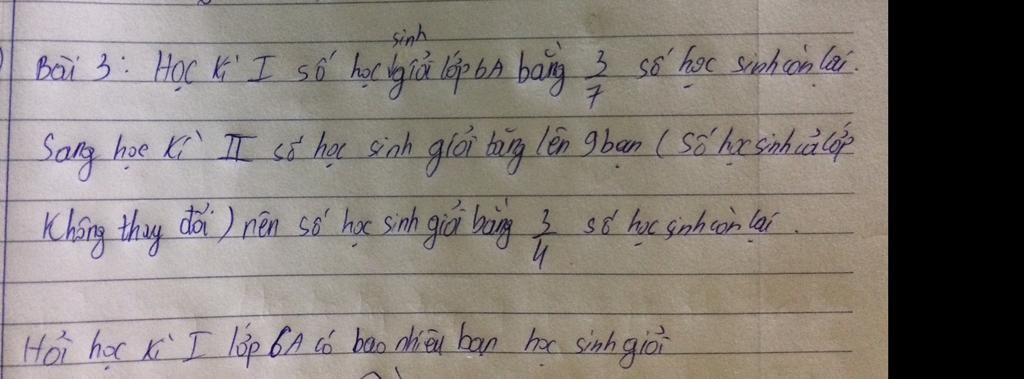 Bài 3: Học kì I số học sinh giỏi lớp 6A bằng 3/7 số học sinh còn lại.
Sang học kì II số học sinh giỏi tăng lên 9 bạn (số học sinh cả lớp
không thay đổi) nên số học sinh giỏi bằng 3/4 số học sinh còn lại.
Hỏi học kì I lớp 6A có bao nhiêu bạn học sinh giỏi